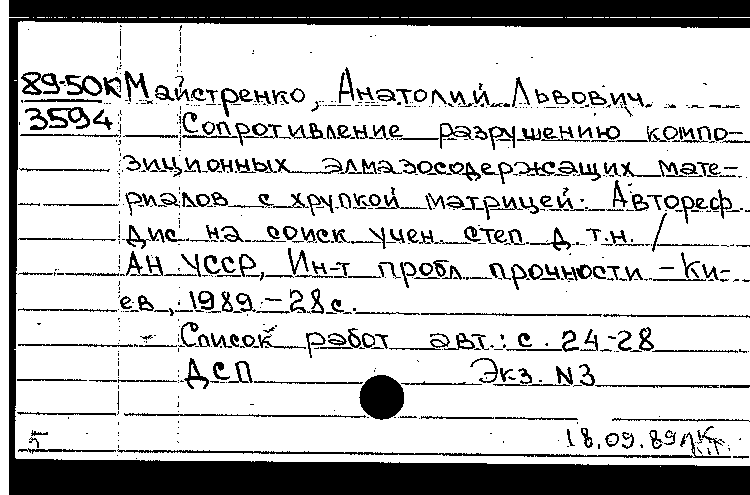 89-50К Майстренко, Анатолий Львович
3594 Сопротивление разрушению компо-
зиционных алмазосодержащих мате-
риалов с хрупкой матрицей. Автореф.
Дис на соиск учен. степ д.т.н. /
АН УССР, Ин-т пробл прочности - Ки-
ев, 1989. - 28с.
- Список работ авт.: с. 24-28
ДСП Экз. N3
5 18.09.89